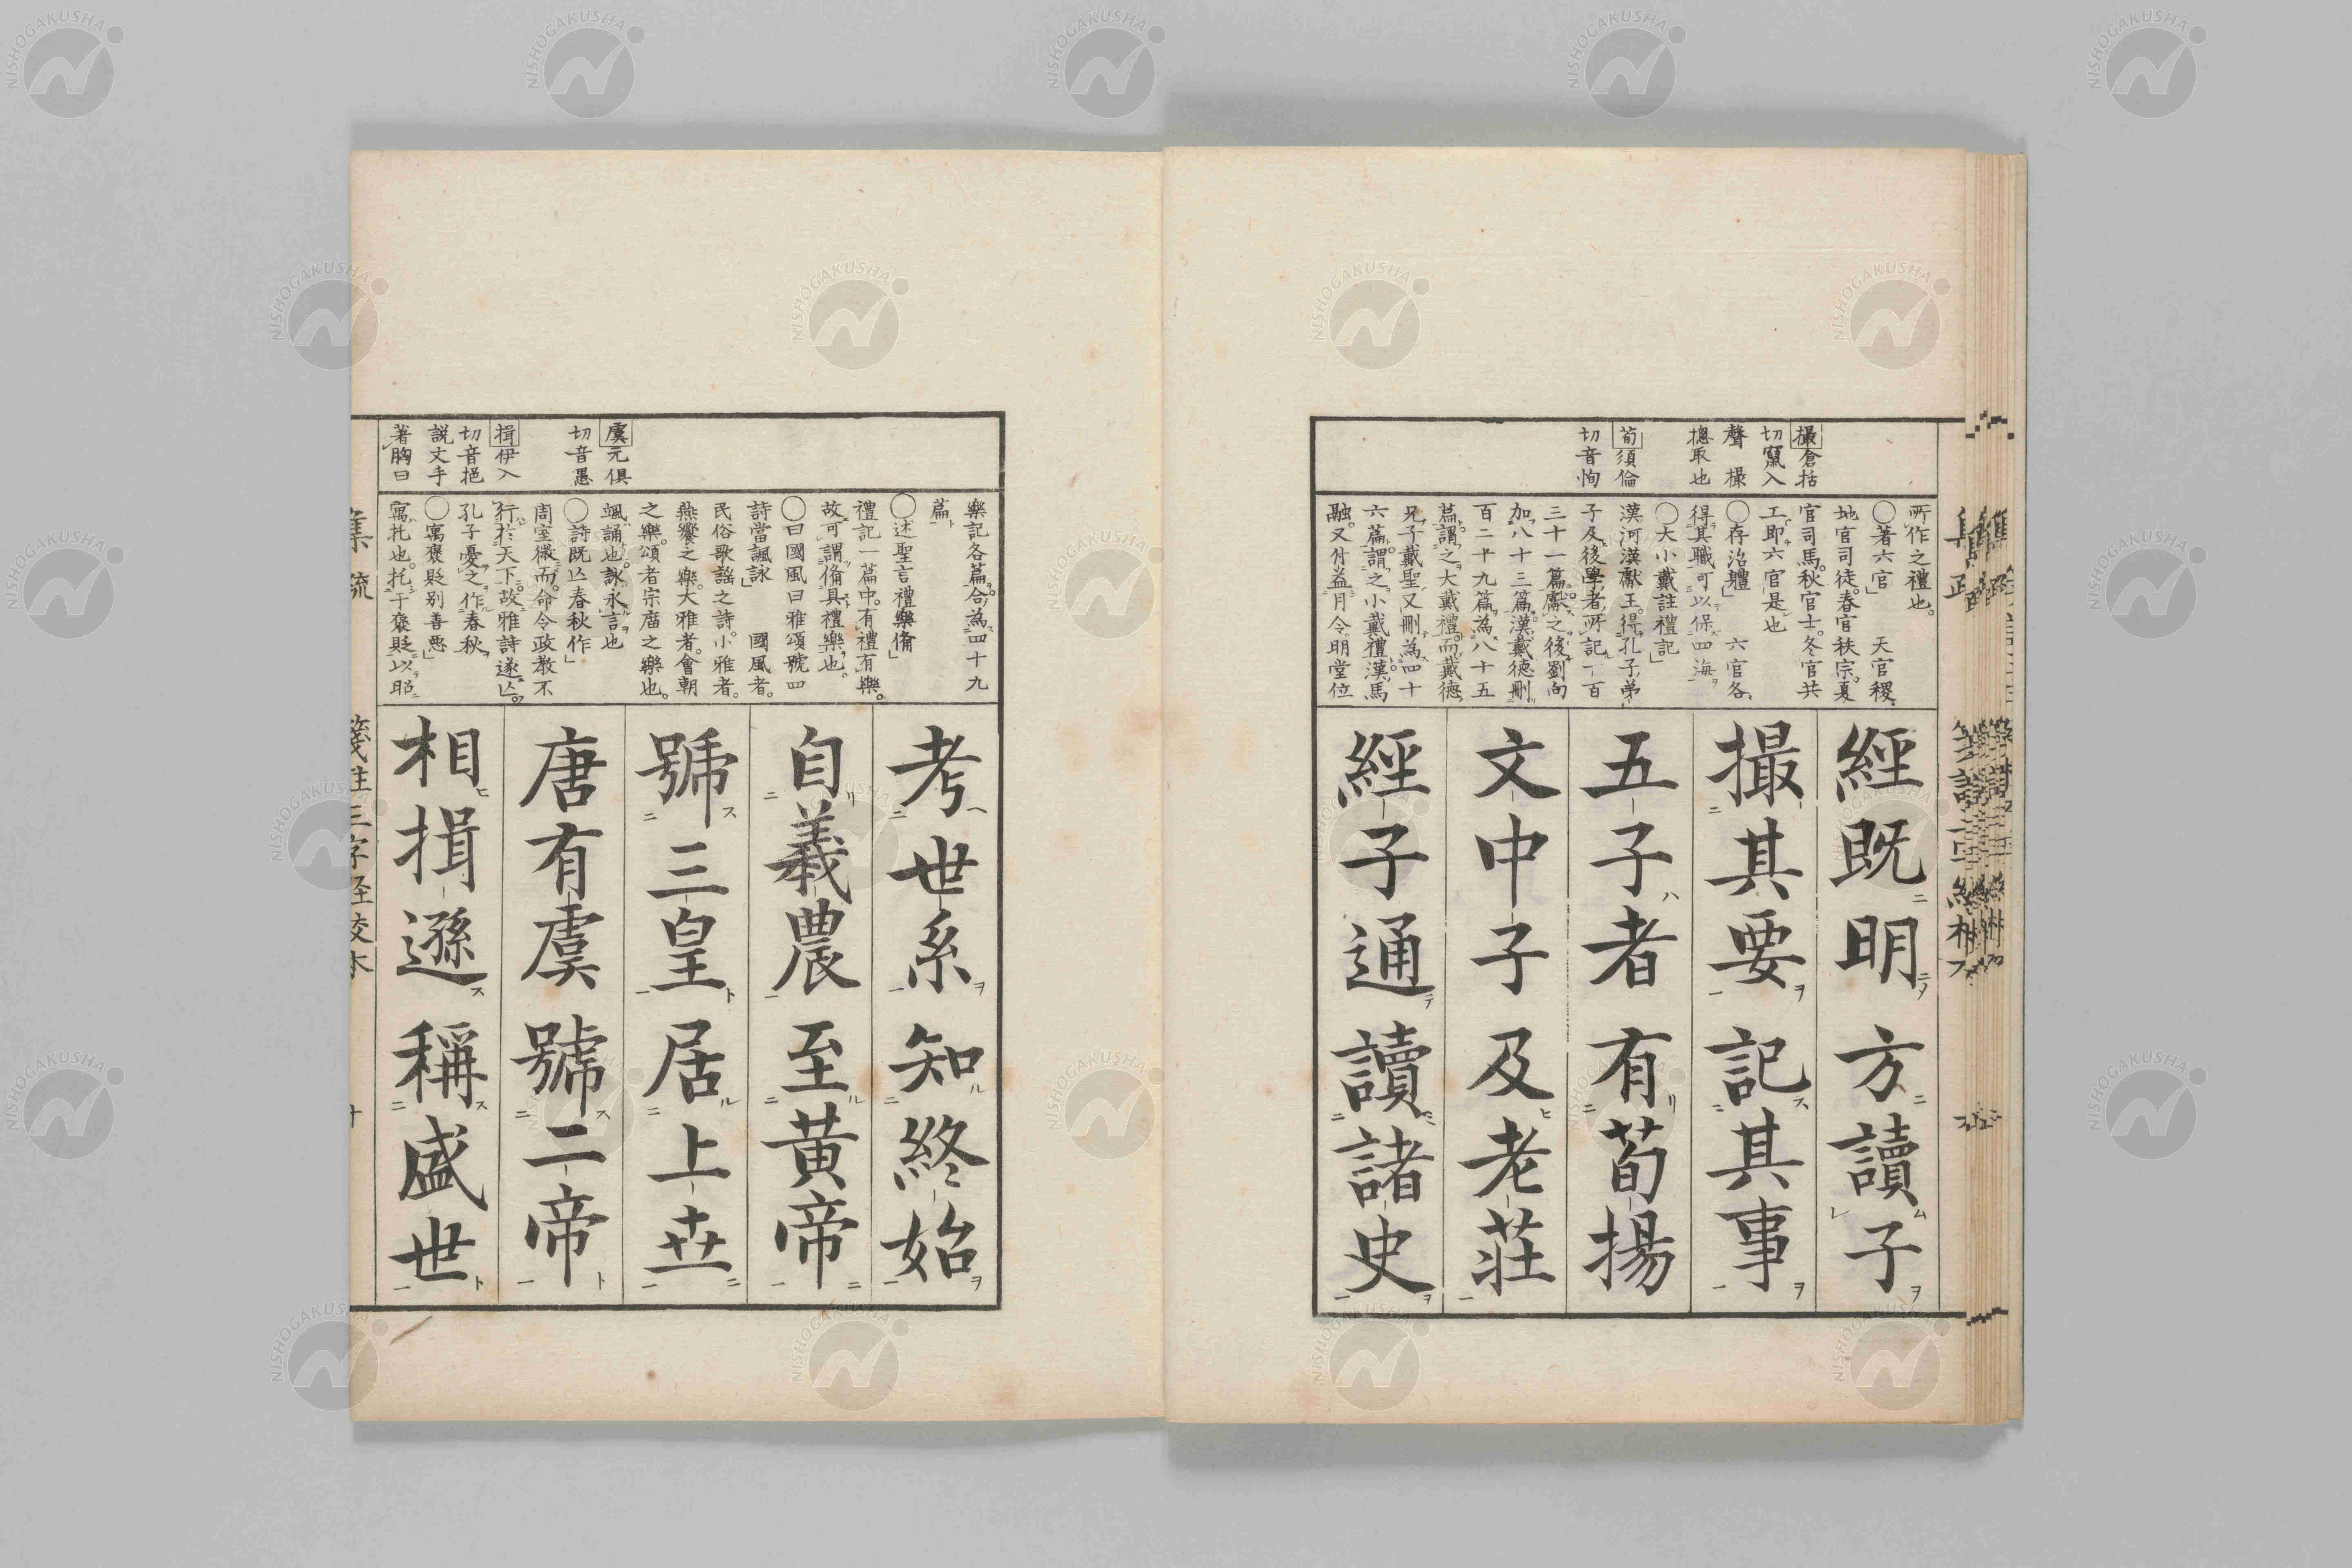 撮倉括
切竄入
聲撮
摠取也
荀須倫
切音恂
所作之禮也。
〇著六官」天官稷。
地官司徒。春官秩宗。夏
官司馬。秋官士。冬官共
工。即六官是也
〇存治軆」六官各
得其職可以保四海
〇大小戴註禮記」
漢河漢獻王。得孔子弟
子及後學者所記一百
三十一篇獻之後劉向
加八十三篇。漢戴德刪
百二十九篇為八十五
篇。謂之大戴禮。而戴德
兄子戴聖又刪為四十
六篇。謂之小戴禮漢馬
融。又付益月令。明堂位
經既明 方讀子
撮其要 記其事
五子者 有荀揚
文中子 及老莊
經子通 讀諸史
虞元俱
切音愚
揖伊入
切音挹
説文手
著胸曰
樂記各篇。合為四十九
篇
〇述聖言禮樂脩」
禮記一篇中。有禮有樂。
故可謂脩具禮樂也。
〇曰國風曰雅頌號四
詩當諷詠」國風者。
民俗歌謠之詩。小雅者。
燕饗之樂。大雅者。會朝
之樂。頌者宗廟之樂也。
諷誦也。詠永言也
〇詩既亾春秋作」
周室微而。命令政教不
行於天下。故雅詩遂亾。
孔子憂之作春秋
〇寓褒貶别善惡」
寓托也。托于褒貶以昭
考世系 知終始
自羲農 至黄帝
號三皇 居上世
唐有虞 號二帝
相揖遜 稱盛世
箋註三字経校本
十
NISHOGAKUSHA